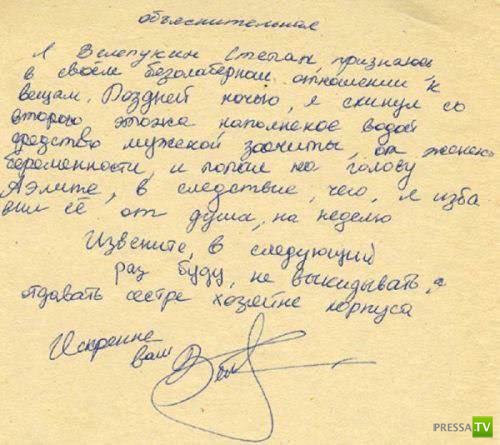 объяснительная
Я Велепукин Степан, признаюсь
в своём безолаберном отношении к
вещам. Поздней ночью, я скинул со
второго этожа наполненое водой
средство мужской защиты, от женской
беременности, и попал на голову
Аэлите, в следствие, чего, я изба
вил её от душа, на неделю
Извените, в следующий
раз буду, не выкидывать, а
отдавать сестре хозяйке корпуса
Искренне
ваш
PRESSA TV